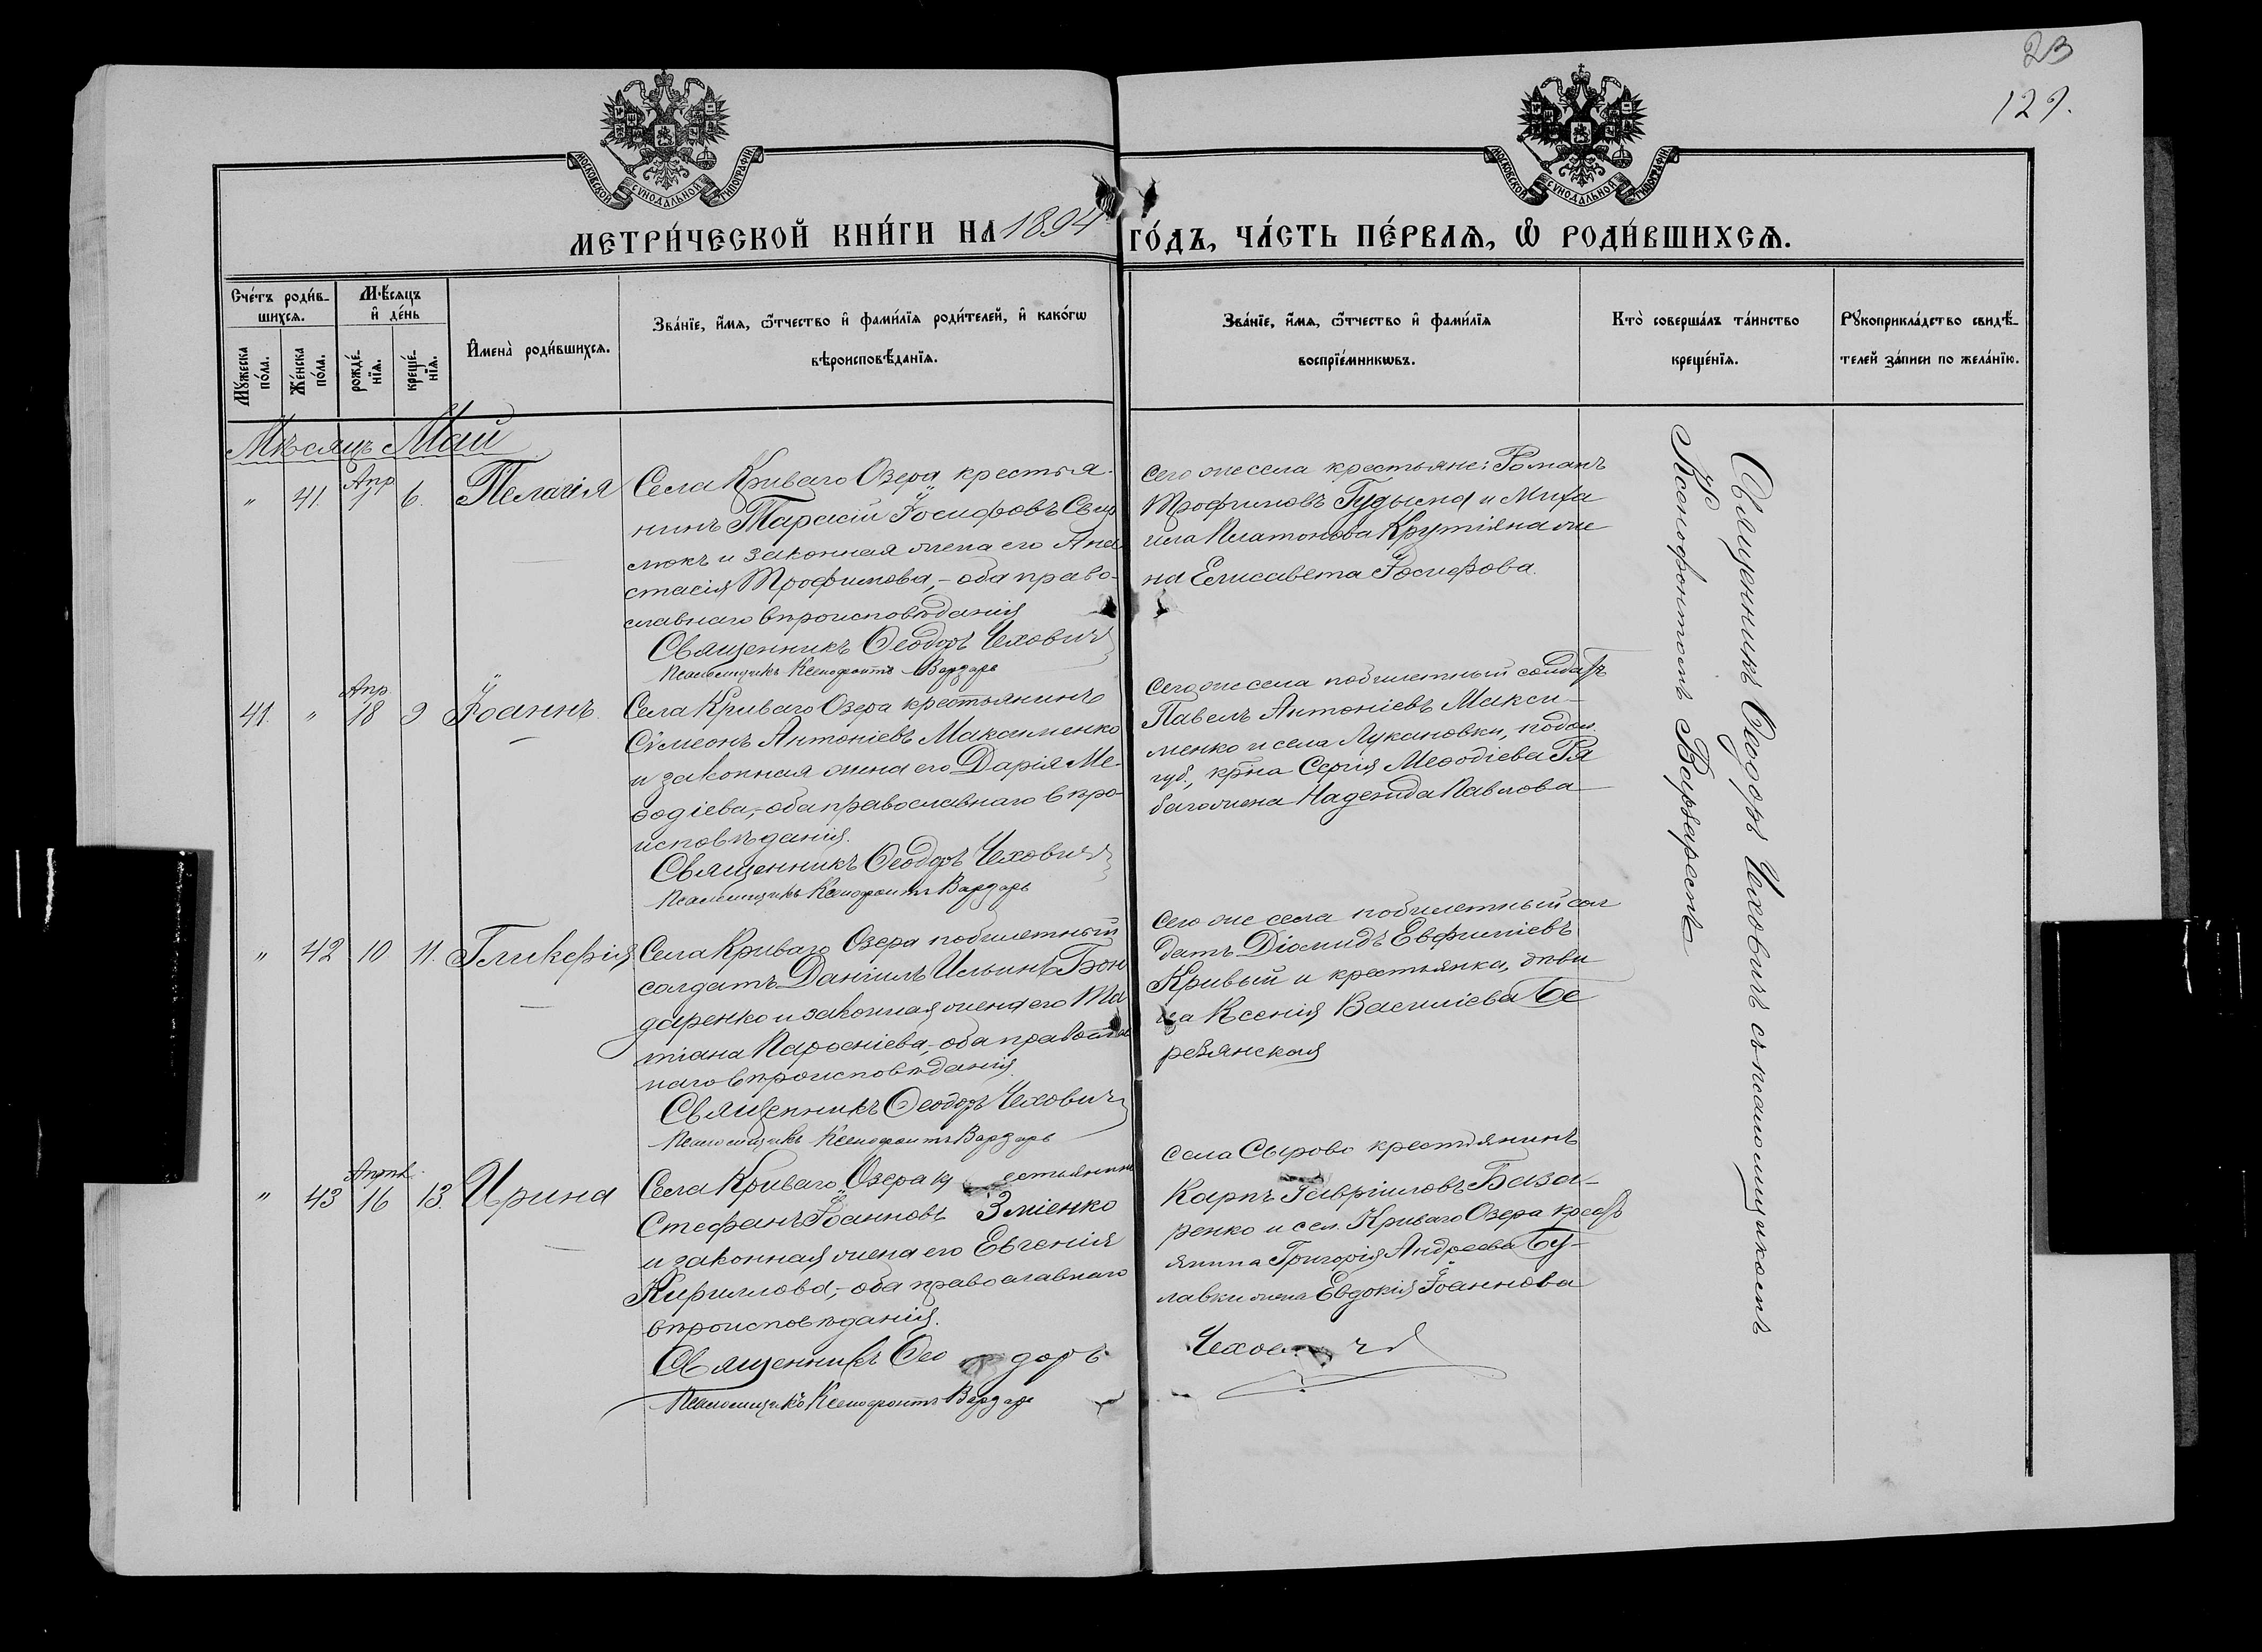 23
129.
МОСКОВСКОЙ СѴНОДАЛЬНОЙ ТИПОГРАФІИ
МОСКОВСКОЙ СѴНОДАЛЬНОЙ ТИПОГРАФІИ
МЕТРИ́ЧЕСКОЙ КНИ́ГИ НА 1894 ГО́ДЪ, ЧА́СТЬ ПЕ́РВАѦ, Ѡ҆ РОДИ́ВШИХСѦ.
Сче́тъ роди́в-
шихсѧ.
Мꙋ́жеска
по́ла.
Же́нска
по́ла.
Мѣ́сѧцъ
и҆ де́нь
рожде́-
нїѧ.
креще́-
нїѧ.
И҆мена̀ роди́вшихсѧ.
Зва́нїе, и҆́мѧ, ѻ҆́тчество и҆ фами́лїѧ роди́телей, и҆ како́гѡ
вѣроисповѣ́данїѧ.
Зва́нїе, и҆́мѧ, ѻ҆́тчество и҆ фами́лїѧ
воспрїе́мникѡвъ.
Кто̀ соверша́лъ та́инство
креще́нїѧ.
Рꙋкоприкла́дство свидѣ́-
телей за́писи по жела́нїю.
Мѣсяцъ Май
" 41. Апр 6. Пелагія
Села Криваго Озера крестья-
нинъ Тарасій Іосифовъ
и законная жена его Ана
стасія Трофимова,- оба право-
славнаго вѣроисповѣданія
Священникъ Ѳеодоръ Чеховичъ
Псаломщикъ Ксенофонтъ Вардарь
Сего же села крестьяне: Романъ
Трофимовъ Гудыма и Миха
ила Платонова Крутіяна же
на Елисавета Іосифова.
41. " Апр. 18 9 Іоаннъ
Села Криваго Озера крестьянинъ
Сѵмеонъ Антоніевъ Максименко
и законная жена его Дарія Ме-
ѳодіева,- оба православнаго вѣро
исповѣданія.
Священникъ Ѳеодоръ Чеховичъ
Псаломщикъ Ксенофонтъ Вардарь
Сего же села побилетный солдатъ
Павелъ Антоніевъ Макси-
менко и села Лукановки, подол.
губ., кр-на Сергія Меѳодіева
жена Надежда Павлова
" 42 10 11. Гликерія
Села Криваго Озера побилетный
солдатъ Даніилъ Ильинъ Бон
даренко и законная жена его Та
тіана Парѳеніева,- оба православ
наго вѣроисповѣданія.
Священникъ Ѳеодоръ Чеховичъ
Псаломщикъ Ксенофонтъ Вардарь
Сего же села побилетный сол
датъ Діомидъ Евфиміевъ
Кривый и крестьянка, дѣви
ца Ксенія Василіева Бе
резянская
" 43 Апрѣл. 16 13. Ирина
Села Криваго Озера кр естьянинъ
Стефанъ Іоанновъ Зміенко
и законная жена его Евгенія
Кириллова,- оба православнаго
вѣроисповѣданія.
Священникъ Ѳео доръ Чехови чъ
Псаломщикъ Ксенофонтъ Вардарь
Села Сырово крестьянинъ
Карпъ Гавріиловъ База-
ренко и сел. Криваго Озера крест
янина Григорія Андреева Бу-
лавки жена Евдокія Іоаннова
Священникъ Ѳеодоръ Чеховичъ съ псаломщикомъ
Ксенофонтомъ Вардаремъ